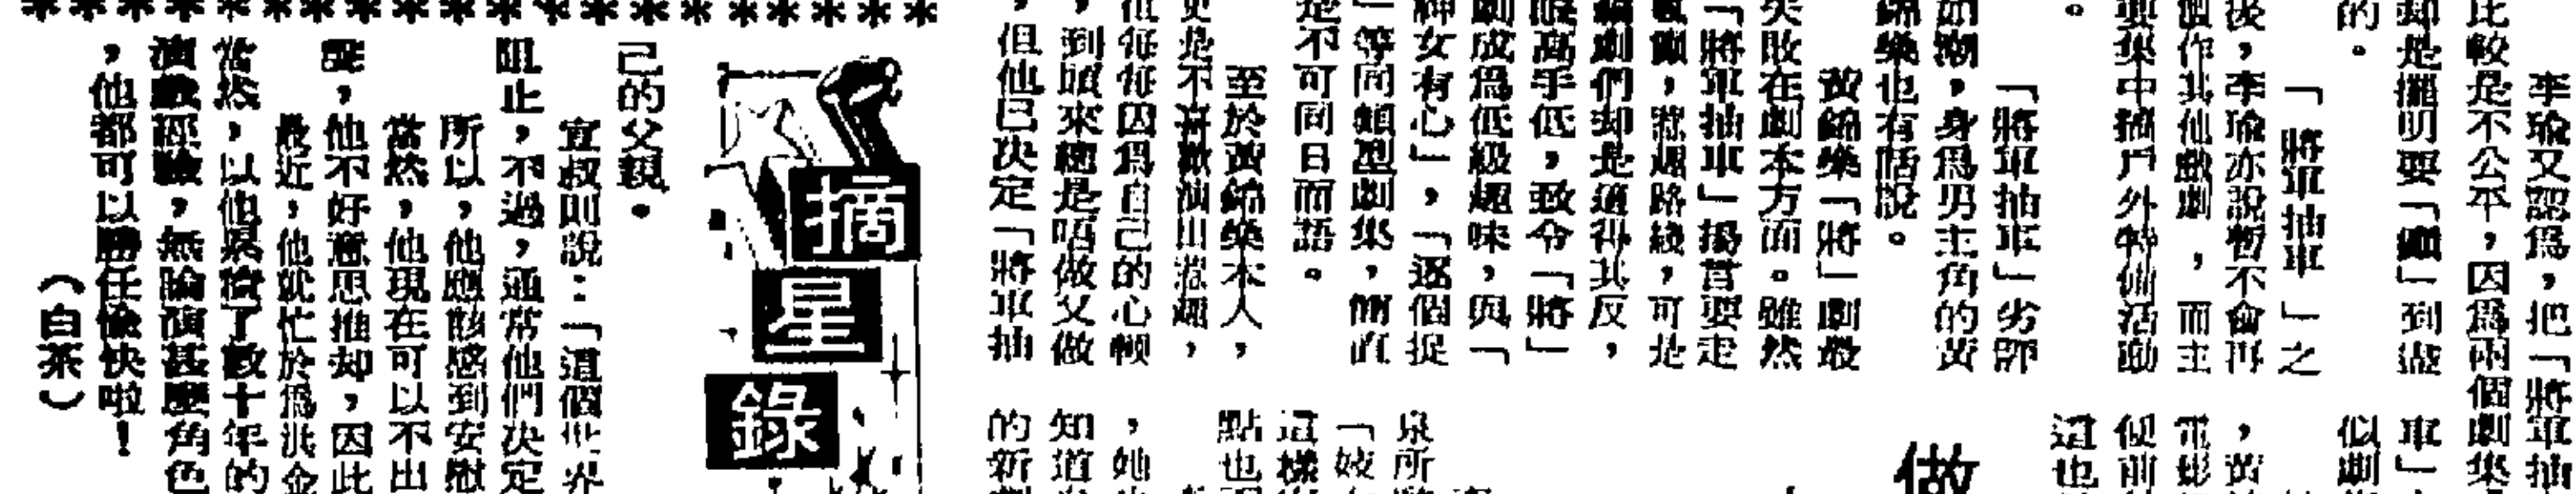 李瑜又認爲，把「將軍抽
比較是不公平，因爲兩個劇集
却是擺明要「癲」到盡
的。
「將軍抽車」之
後，李瑜亦說暫不會再
個作其他戲劇，而主
要集中搞戶外特備活動
。
「將軍抽車」劣評
如潮，身爲男主角的黃
錦燊也有話說。
黃錦燊「將」劇最
失敗在劇本方面。雖然
「將軍抽車」揚言要走
惹笑路綫，可是
編劇們却是適得其反，
眼高手低，致令「將」
劇成爲低級趣味，與「
神女有心」，「逐個捉
」等同類型劇集，簡直
是不可同日而語。
至於黃錦燊本人，
更是不喜歡演出
但每每因爲自己的心
，到頭來總是唔做又做
，但他已决定「將軍抽
車」
似劇
，黃
電影
但前
這也
做
泉所
「妓
這樣
點也
，她
知道
的新
摘
星
錄
己的父親。
宣叔則說：「這個世界
阻止，不過，通常他們决定
所以，他應該感到安慰
當然，他現在可以不出
聲，他不好意思推却，因此
最近，他就忙於爲洪金
當然，以他累積了數十年的
演戲經驗，無論演甚麼角色
，他都可以勝任愉快啦！
（白茶）